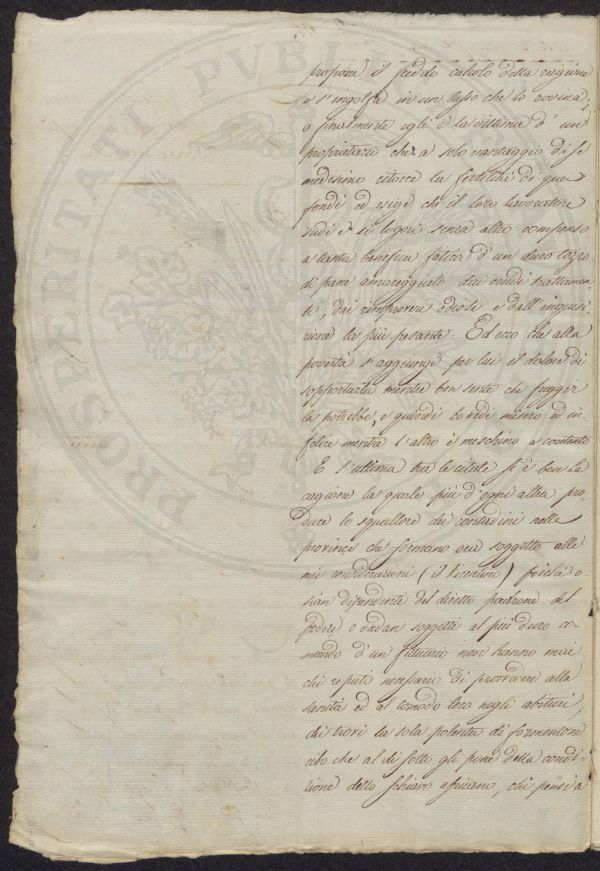 PROSPERITATI PUBLICAE
propone il freddo calcolo della ragione
e s'ingolfa in un lusso che lo rovina;
o finalmente egli è la vittima d'un
proprietario che a solo vantaggio di se
medesimo ritorce la fertilità di que'
fondi ed esige che il loro lavoratore
sudi e si logori senza altro compenso
a tanta benefica fatica d'un duro tozzo
di pane amareggiato dai crudi trattamen-
ti, dai rimproveri odiosi e dall'inquisi-
zione la più pesante. Ed ecco che alla
povertà s'aggiunge per lui il dolore di
sopportarla mentre ben sente che fuggir
la potrebbe, e quindi lo vedi misero ed in-
felice mentre l'altro è meschino e contento
E l'ultima tra le citate si è ben la
cagione la quale più d'ogni altra pro
duce lo squallore dei contadini nelle
province che formano ora soggetto alle
mie considerazioni (il Vicentino) poichè o
sian dipendenti del diretto padrone del
podere o vadan soggetti al più duro co-
mando d'un fittuario non hanno mai
chi reputi necessario di provvedere alla
sanità ed al comodo loro negli abituri,
chi trovi la sola polenta di formentone
cibo che al di sotto gli pone della condi-
zione dello schiavo africano, chi pensi a